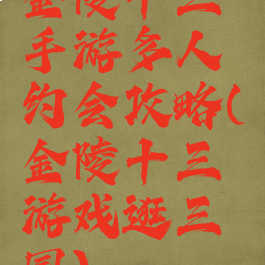 金陵十三
手游多人
约会攻略(
金陵十三
游戏逛三
国)